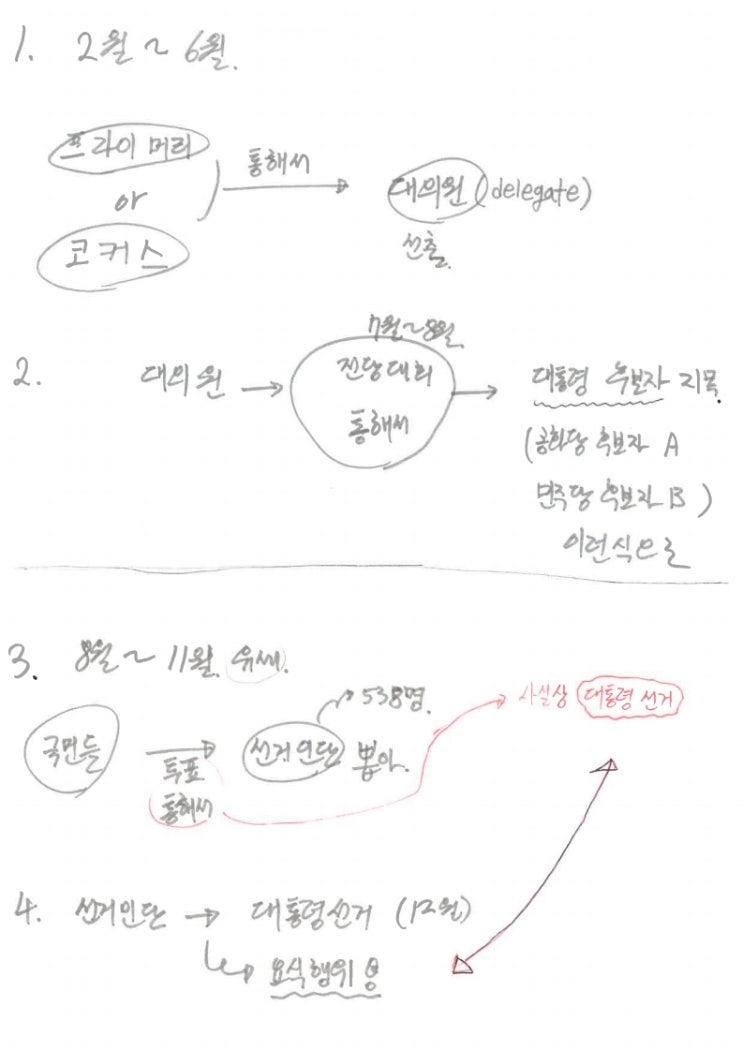 1. 2월 ~ 6월.
프라이머리
or
코커스
통해서
대의원 (delegate)
선출.
2. 대의원
7월~8월.
전당대회
통해서
대통령 후보자 지목.
(공화당 후보자 A
민주당 후보자 B)
이런식으로
3. 8월 ~ 11월. 유세.
국민들
투표
통해서
선거인단 뽑아.
538명.
사실상 대통령 선거
4. 선거인단 → 대통령선거 (12월)
요식행위용